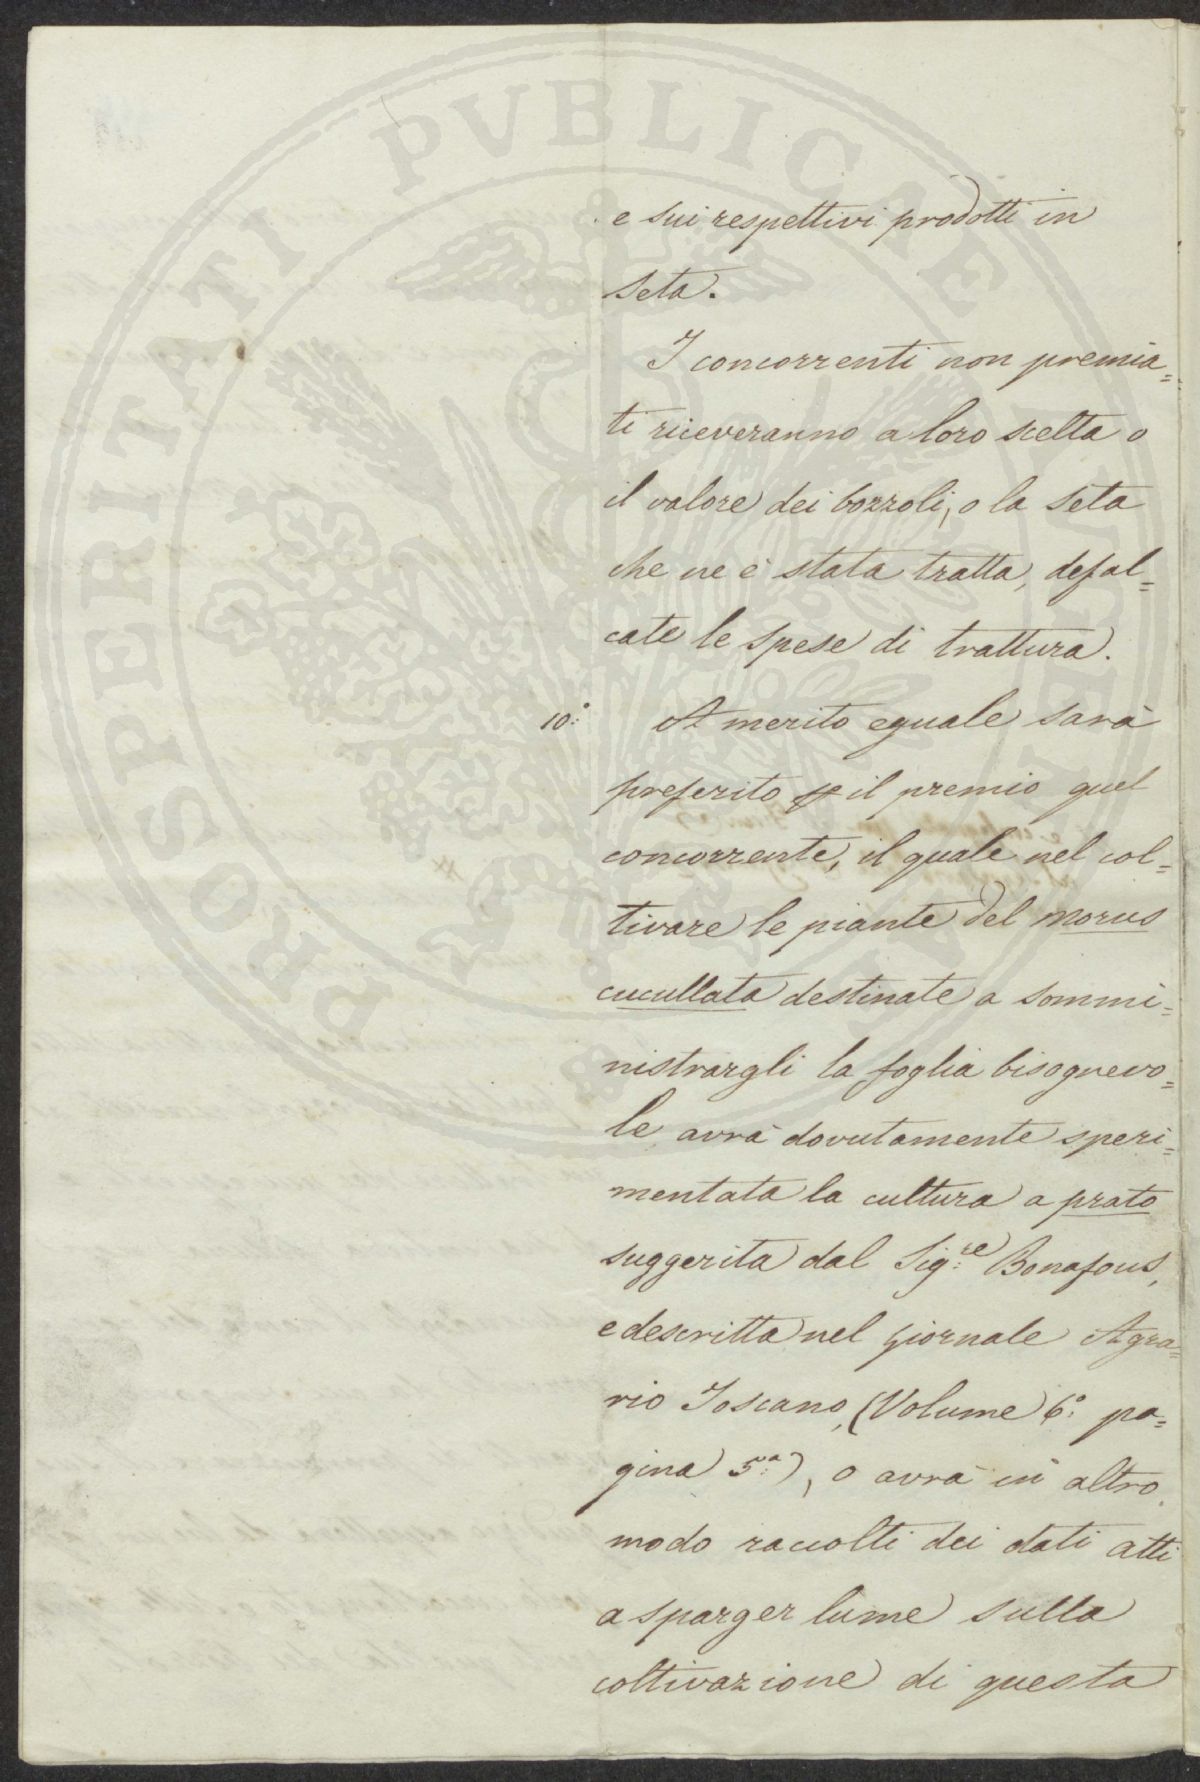 PROSPERITATI PVBLICAE AVGENDAE
e sui respettivi prodotti in
seta.
I concorrenti non premia=
ti riceveranno a loro scelta o
il valore dei bozzoli, o la seta
che ne è stata tratta, defal=
cate le spese di trattura.
10.° A merito eguale sarà
preferito p il premio quel
concorrente, il quale nel col=
tivare le piante del morus
cucullata destinate a sommi=
nistrargli la foglia bisognevo=
le avrà dovutamente speri=
mentata la cultura a prato
suggerita dal Sig.re Bonafous,
e descritta nel giornale Agra=
rio Toscano, (Volume 6.° pa=
gina 5.a), o avrà in altro
modo raccolti dei dati atti
a sparger lume sulla
coltivazione di questa